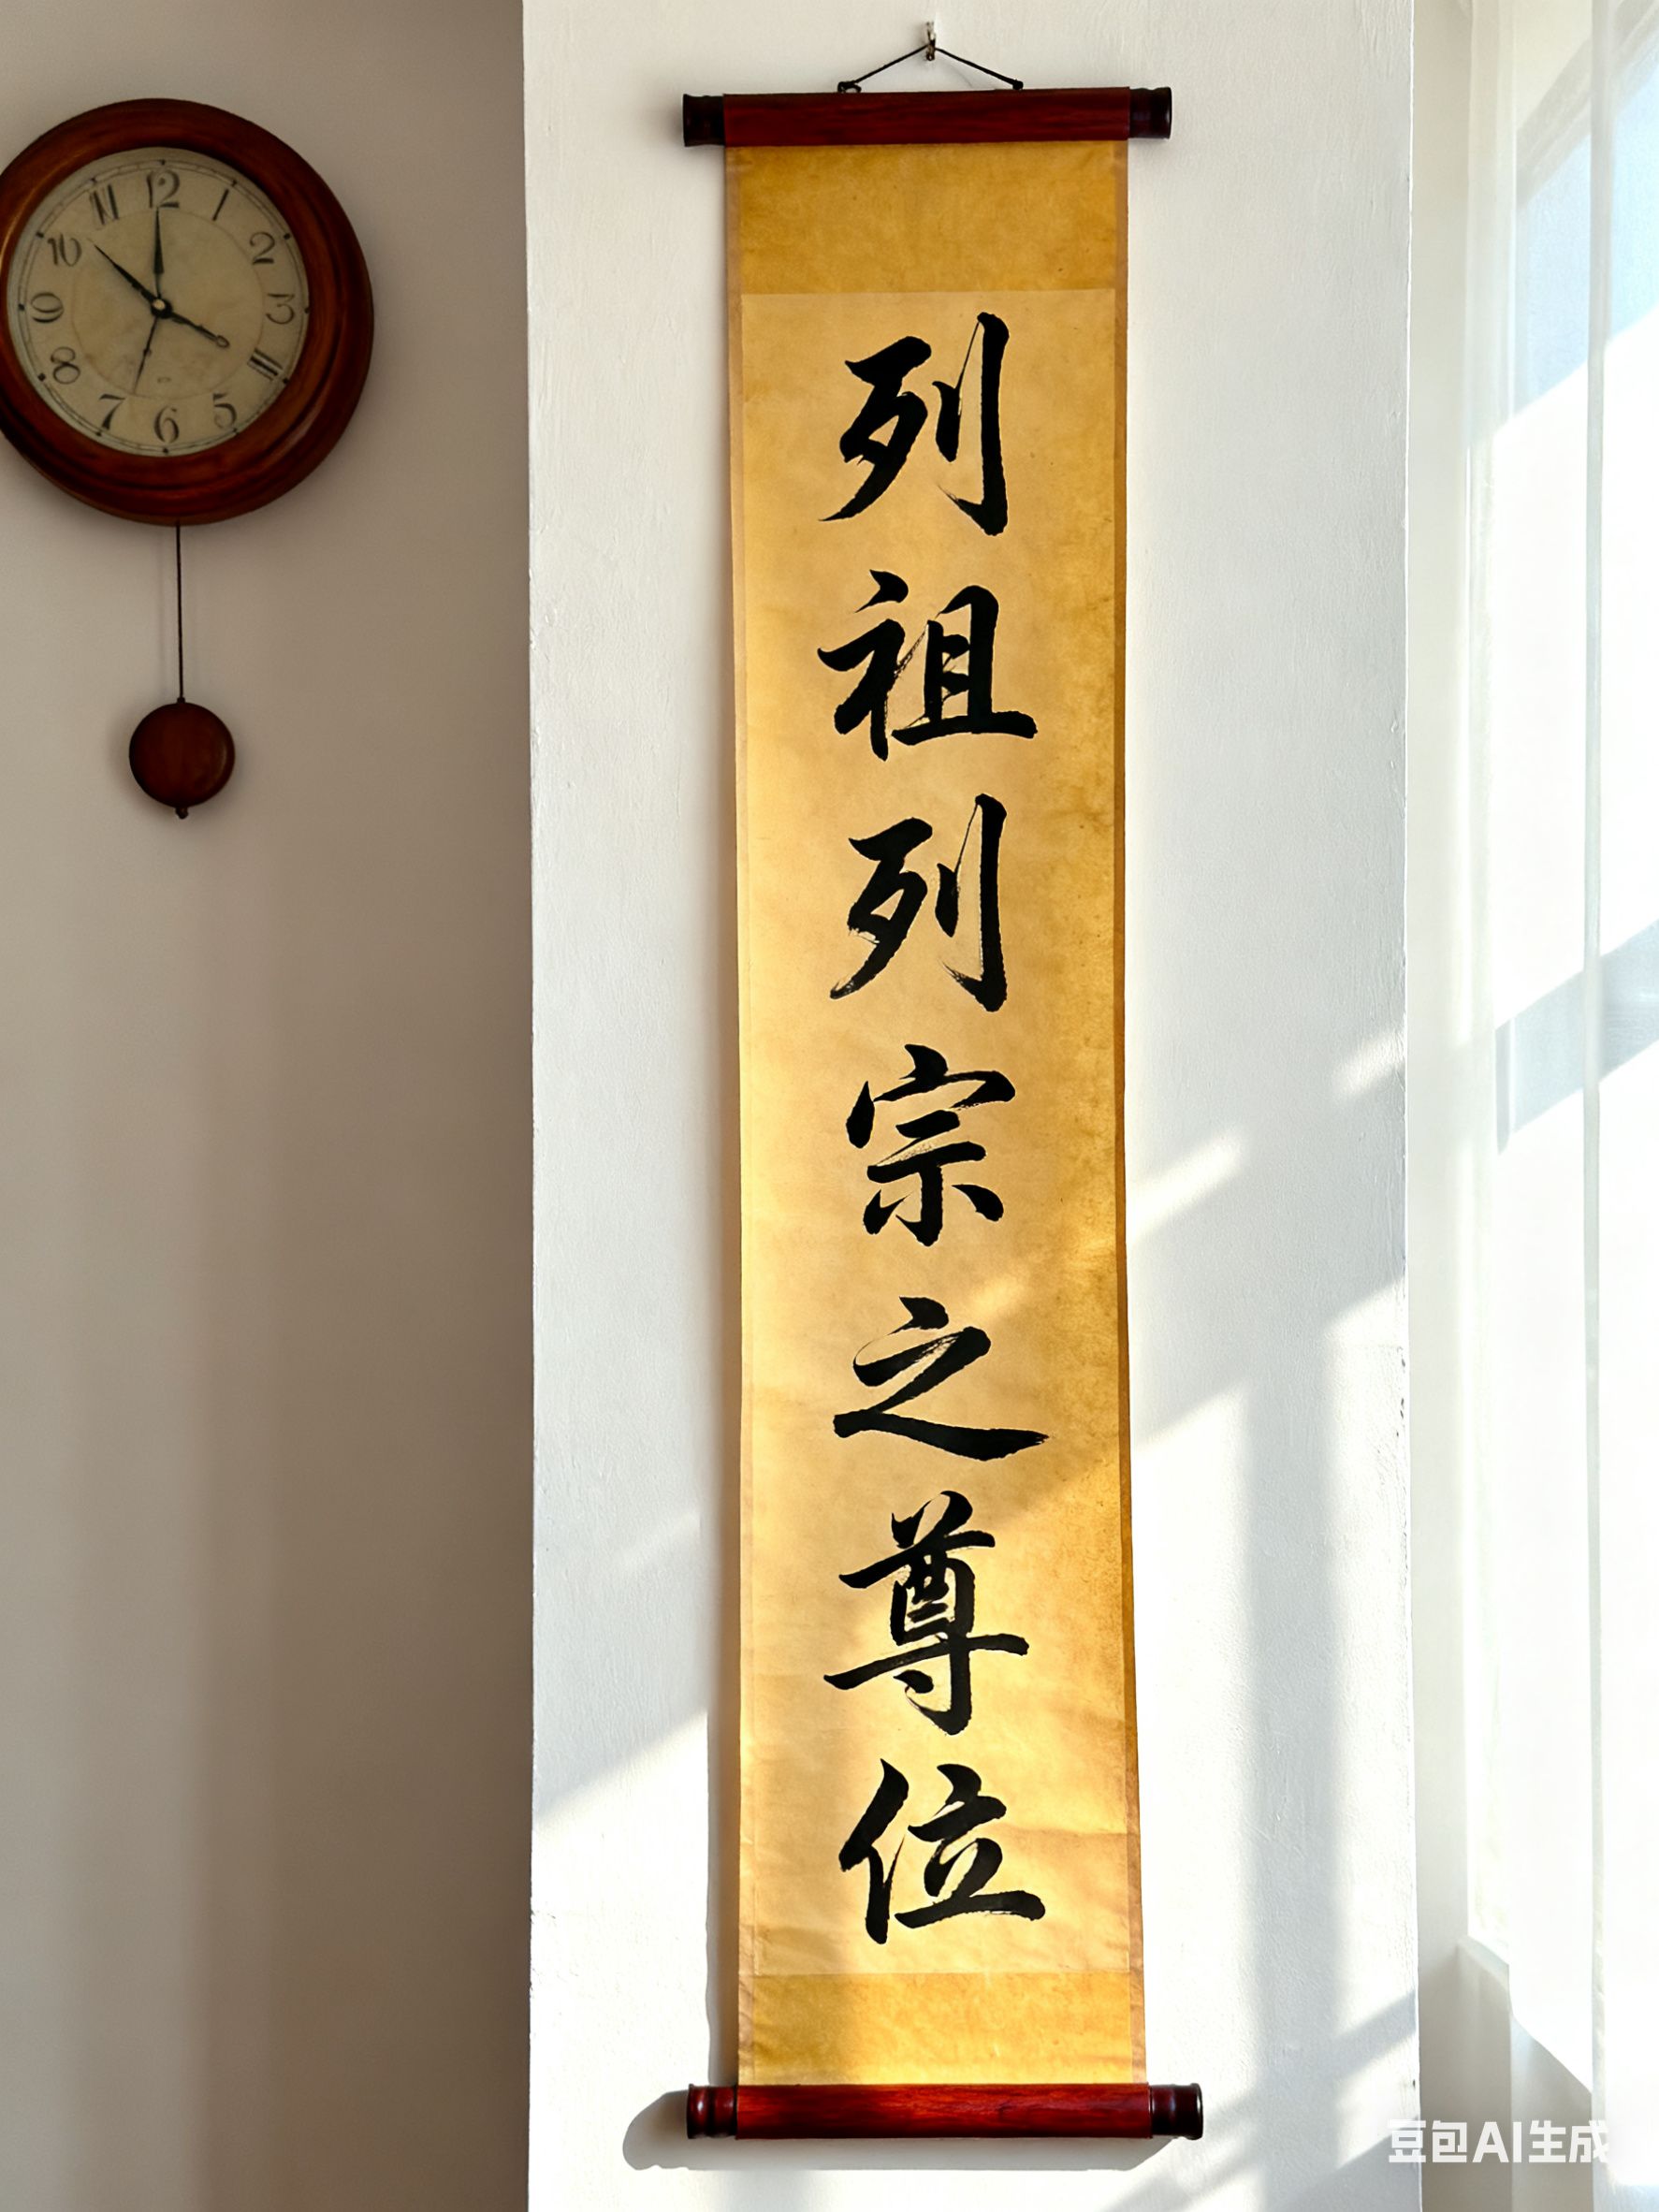 12
1
2
3
5
6
7
8
9
10
列祖列宗之尊位
豆包AI生成